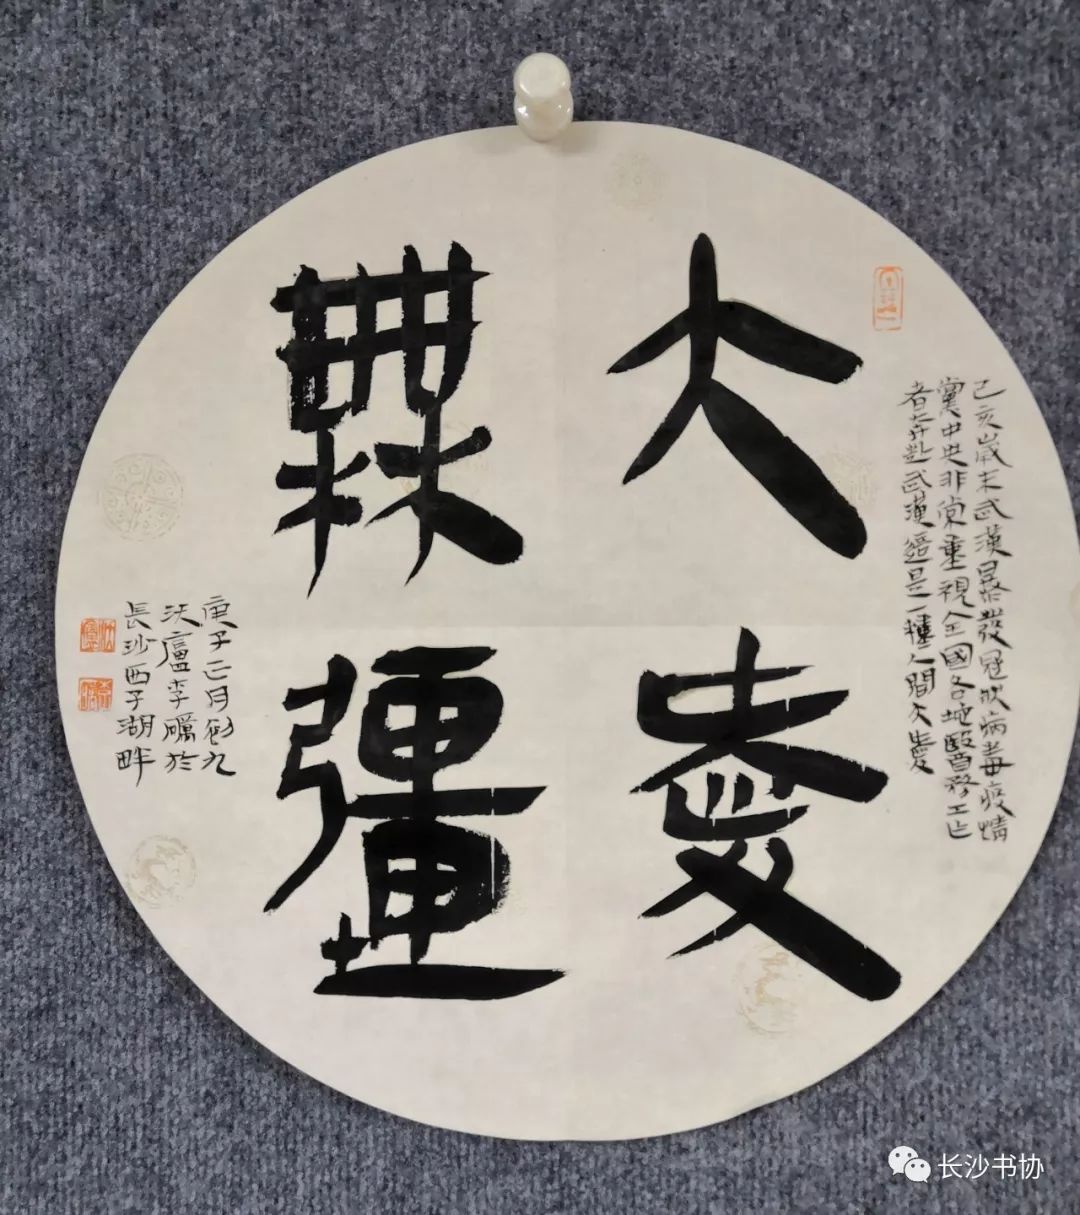 大愛
無疆
己亥歲末武漢暴發冠狀病毒疫情
黨中央非常重視全國各地醫務工作
者奔赴武漢這是一種人間大愛
庚子正月初九
沃廬李礪於
長沙西子湖畔
长沙书协